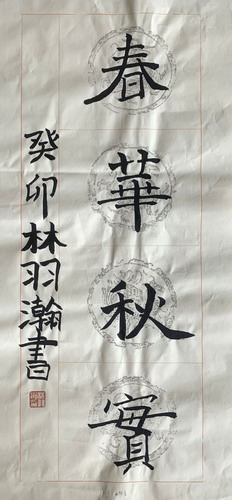 春華秋實
癸卯林羽瀚書